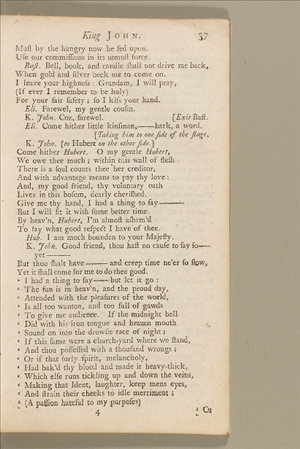 King JOHN. 37
Must by the hungry now be fed upon.
Use our commission in its utmost force.
Bast. Bell, book, and candle shall not drive me back,
When gold and silver beck me to come on.
I leave your highness: Grandam, I will pray,
(If ever I remember to be holy)
For your fair safety; so I kiss your hand.
Eli. Farewel, my gentle cousin.
K. John. Coz, farewel. [Exit Bast.
Eli. Come hither little kinsman,——hark, a word.
[Taking him to one side of the stage.
K. John. [to Hubert on the other side.]
Come hither Hubert. O my gentle Hubert,
We owe thee much; within this wall of flesh
There is a soul counts thee her creditor,
And with advantage means to pay thy love:
And, my good friend, thy voluntary oath
Lives in this bosom, dearly cherished.
Give me thy hand, I had a thing to say——
But I will fit it with some better time.
By heav'n, Hubert, I'm almost asham'd
To say what good respect I have of thee.
Hub. I am much bounden to your Majesty.
K. John. Good friend, thou hast no cause to say so—
yet——
But thou shalt have——and creep time ne'er so slow,
Yet it shall come for me to do thee good.
‘ I had a thing to say——but let it go:
‘ The sun is in heav'n, and the proud day,
‘ Attended with the pleasures of the world,
‘ Is all too wanton, and too full of gawds
‘ To give me audience. If the midnight bell
‘ Did with his iron tongue and brazen mouth
‘ Sound on into the drowsie race of night;
‘ If this same were a church-yard where we stand,
‘ And thou possessed with a thousand wrongs;
‘ Or if that surly spirit, melancholy,
‘ Had bak'd thy blood and made it heavy-thick,
‘ Which else runs tickling up and down the veins,
‘ Making that Ideot, laughter, keep mens eyes,
‘ And strain their cheeks to idle merriment;
‘ (A passion hateful to my purposes)
4 ‘ Or